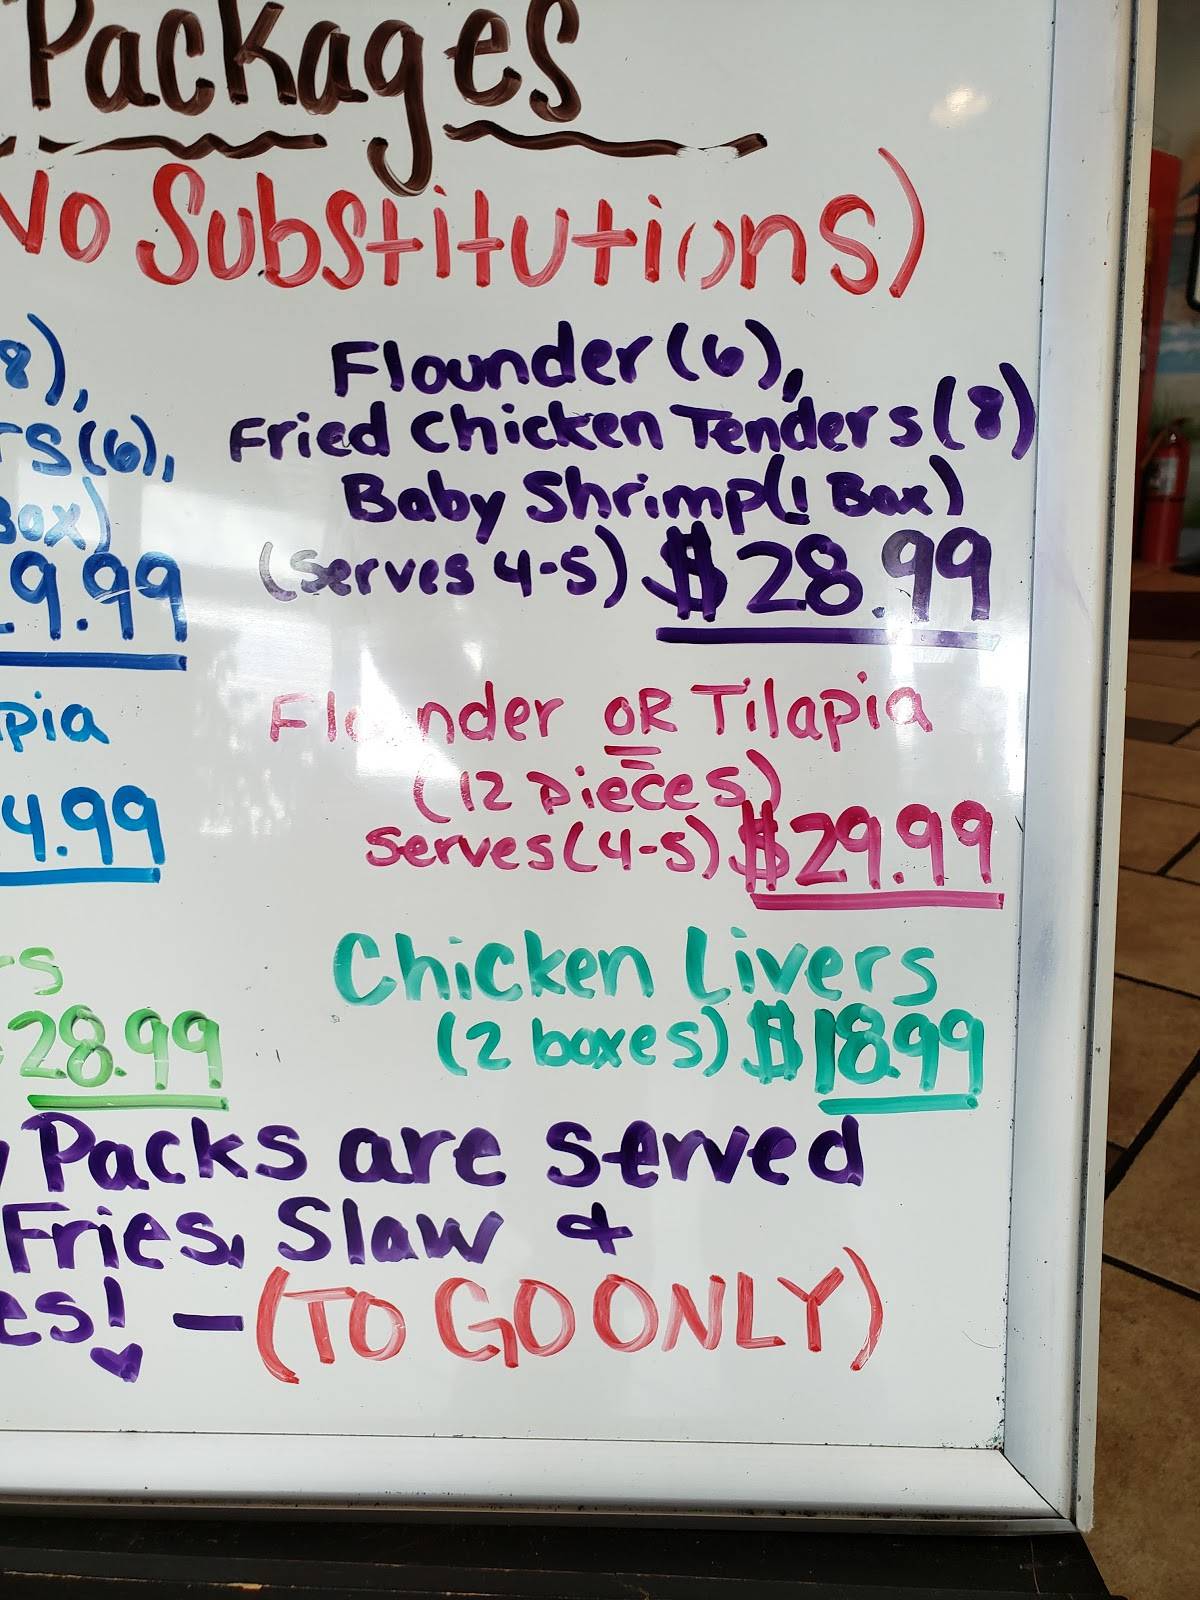 Packages
No Substitutions)
8),
TS(6),
Box)
9.99
Flounder (6),
Fried Chicken Tenders (8)
Baby Shrimp(1 Box)
(serves 4-5) $28.99
pia
4.99
Flounder OR Tilapia
(12 pieces)
Serves (4-5) $29.99
rs
28.99
Chicken Livers
(2 boxes) $18.99
y Packs are served
Fries, Slaw &
es! - (TO GO ONLY)